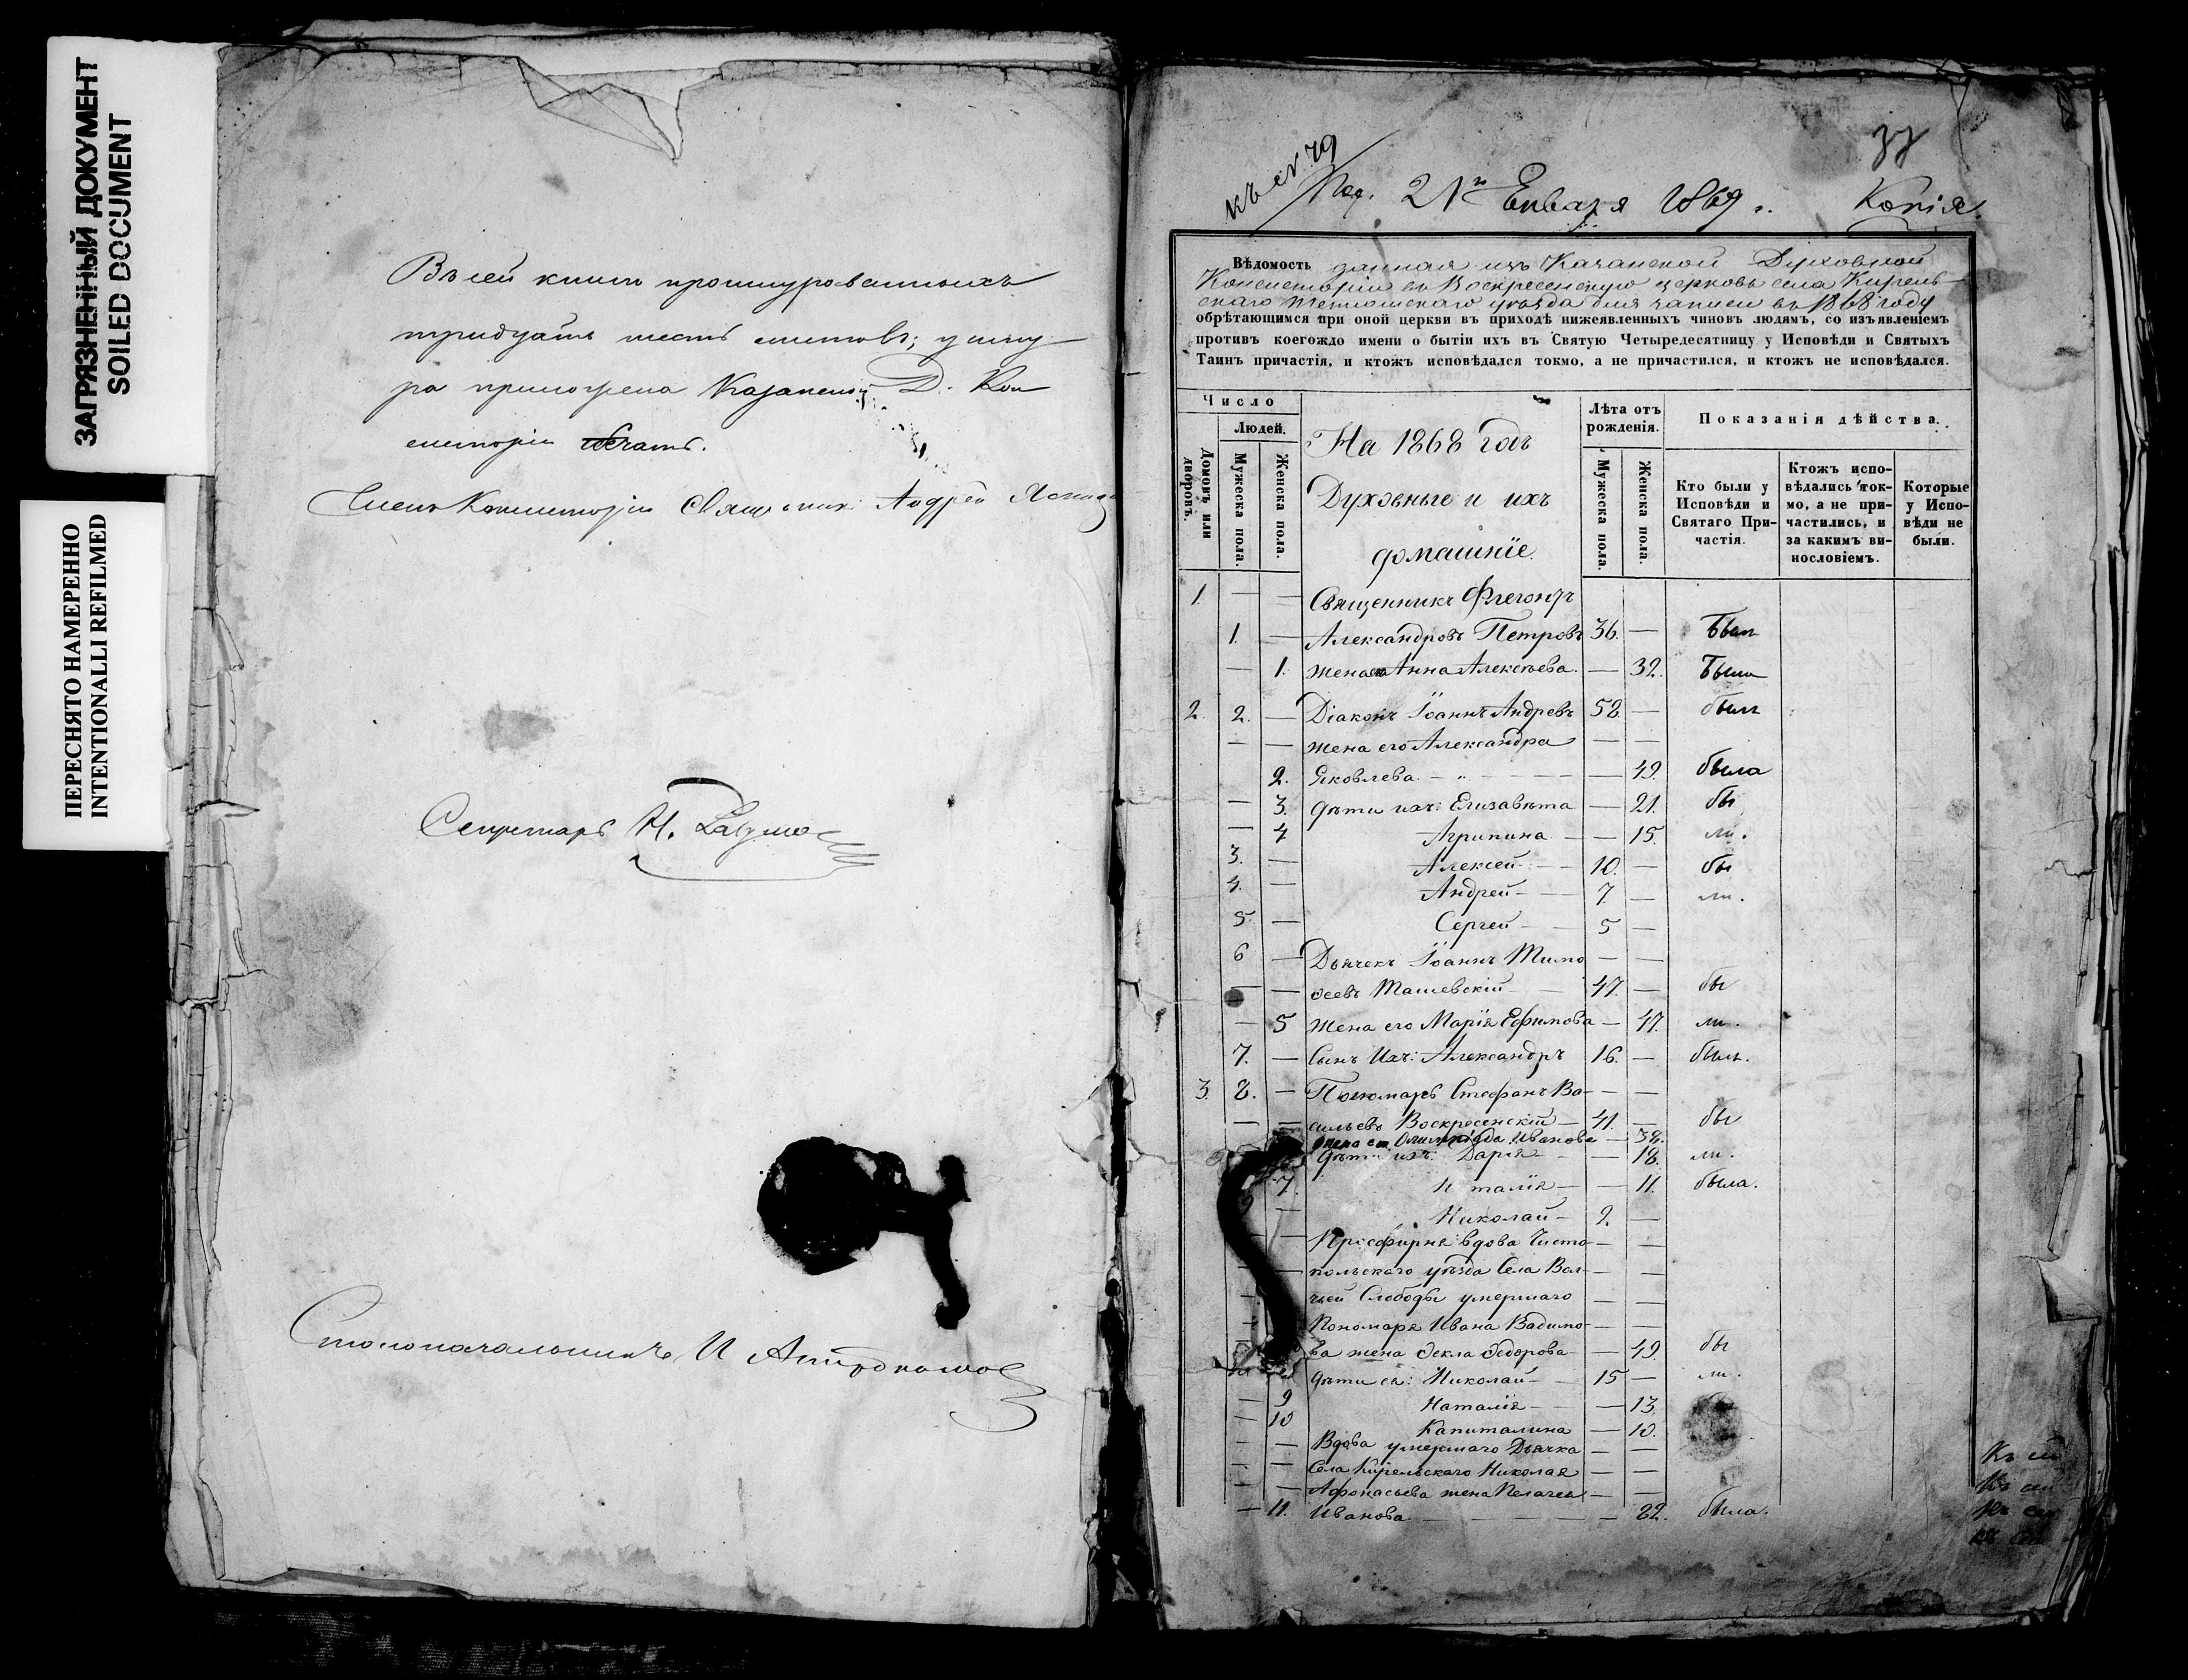 ЗАГРЯЗНЕННЫЙ ДОКУМЕНТ
SOILED DOCUMENT
ПЕРЕСНЯТО НАМЕРЕННО
INTENTIONALLI REFILMED
Въ сей книгѣ прошнурованныхъ
тридцать шесть листовъ; у шну
ра приложена Казанской Д. Кон
систоріи печать.
Членъ Консисторіи Священникъ Андрей
Секретарь И.
Столоначальникъ И
къ ст. 79
Пол. 21го Января 1869 г. Копія.
Вѣдомость данная изъ Казанской Духовной
Консисторіи въ Воскресенскую церковь села Кирель
скаго Тетюшскаго уѣзда для записи въ 1868 году
обрѣтающимся при оной церкви въ приходѣ нижеявленныхъ чиновъ людямъ, со изъявленіемъ
противъ коегождо имени о бытіи ихъ въ Святую Четыредесятницу у Исповѣди и Святыхъ
Таинъ причастія, и ктожъ исповѣдался токмо, а не причастился, и ктожъ не исповѣдался.
Число
Людей.
Домовъ или дворовъ.
Мужеска пола.
Женска пола.
На 1868 годъ
Духовные и ихъ
домашніе.
Лѣта отъ рожденія.
Мужеска пола.
Женска пола.
Показанія дѣйства.
Кто были у Исповѣди и Святаго Причастія.
Ктожъ исповѣдались токмо, а не причастились, и за какимъ винословіемъ.
Которые у Исповѣди не были.
1. — — Священникъ Флегонтъ
1. — Александровъ Петровъ 36. — Былъ
— 1. жена его Анна Алексѣева — 32. Была
2. 2. — Діаконъ Іоаннъ Андревъ 58. — былъ
— — жена его Александра — —
2. Яковлева — 49. была
— 3. дѣти ихъ: Елизавѣта — 21. бы
— 4 Агрипина — 15. ли.
3. — Алексей — 10. — бы
4. — Андрей — 7 — ли.
5. — Сергей — 5 —
6 — Дьячекъ Іоаннъ Тимо — —
— — ѳеевъ Ташевскій — 47. — бы
— 5 жена его Марія Ефимова — 47. ли.
7. — Сынъ ихъ: Александръ 16. — былъ.
3. 8. — Пономарь Стефанъ Ва- — —
— — сильевъ Воскресенскій — 41. — бы
жена его Олимпіада Иванова — 38.
дѣти ихъ: Дарія — 18. ли.
7. Наталія — — 11. была.
— Николай — 9. —
— — Просфирня вдова Чисто- — —
— польскаго уѣзда Села Вол- — —
— чьей Слободы умершаго — —
— Пономаря Ивана Вадимо- — —
ва жена Ѳекла Ѳедорова — 49. бы
дѣти ея: Николай — 15 — ли.
— 9 Наталія — — 13.
— 10 Капиталина — 10.
— — Вдова умершаго Дьячка — —
— — Села Кирельскаго Николая — —
— — Афонасьева жена Пелагея — —
— 11. Иванова — 82. была.